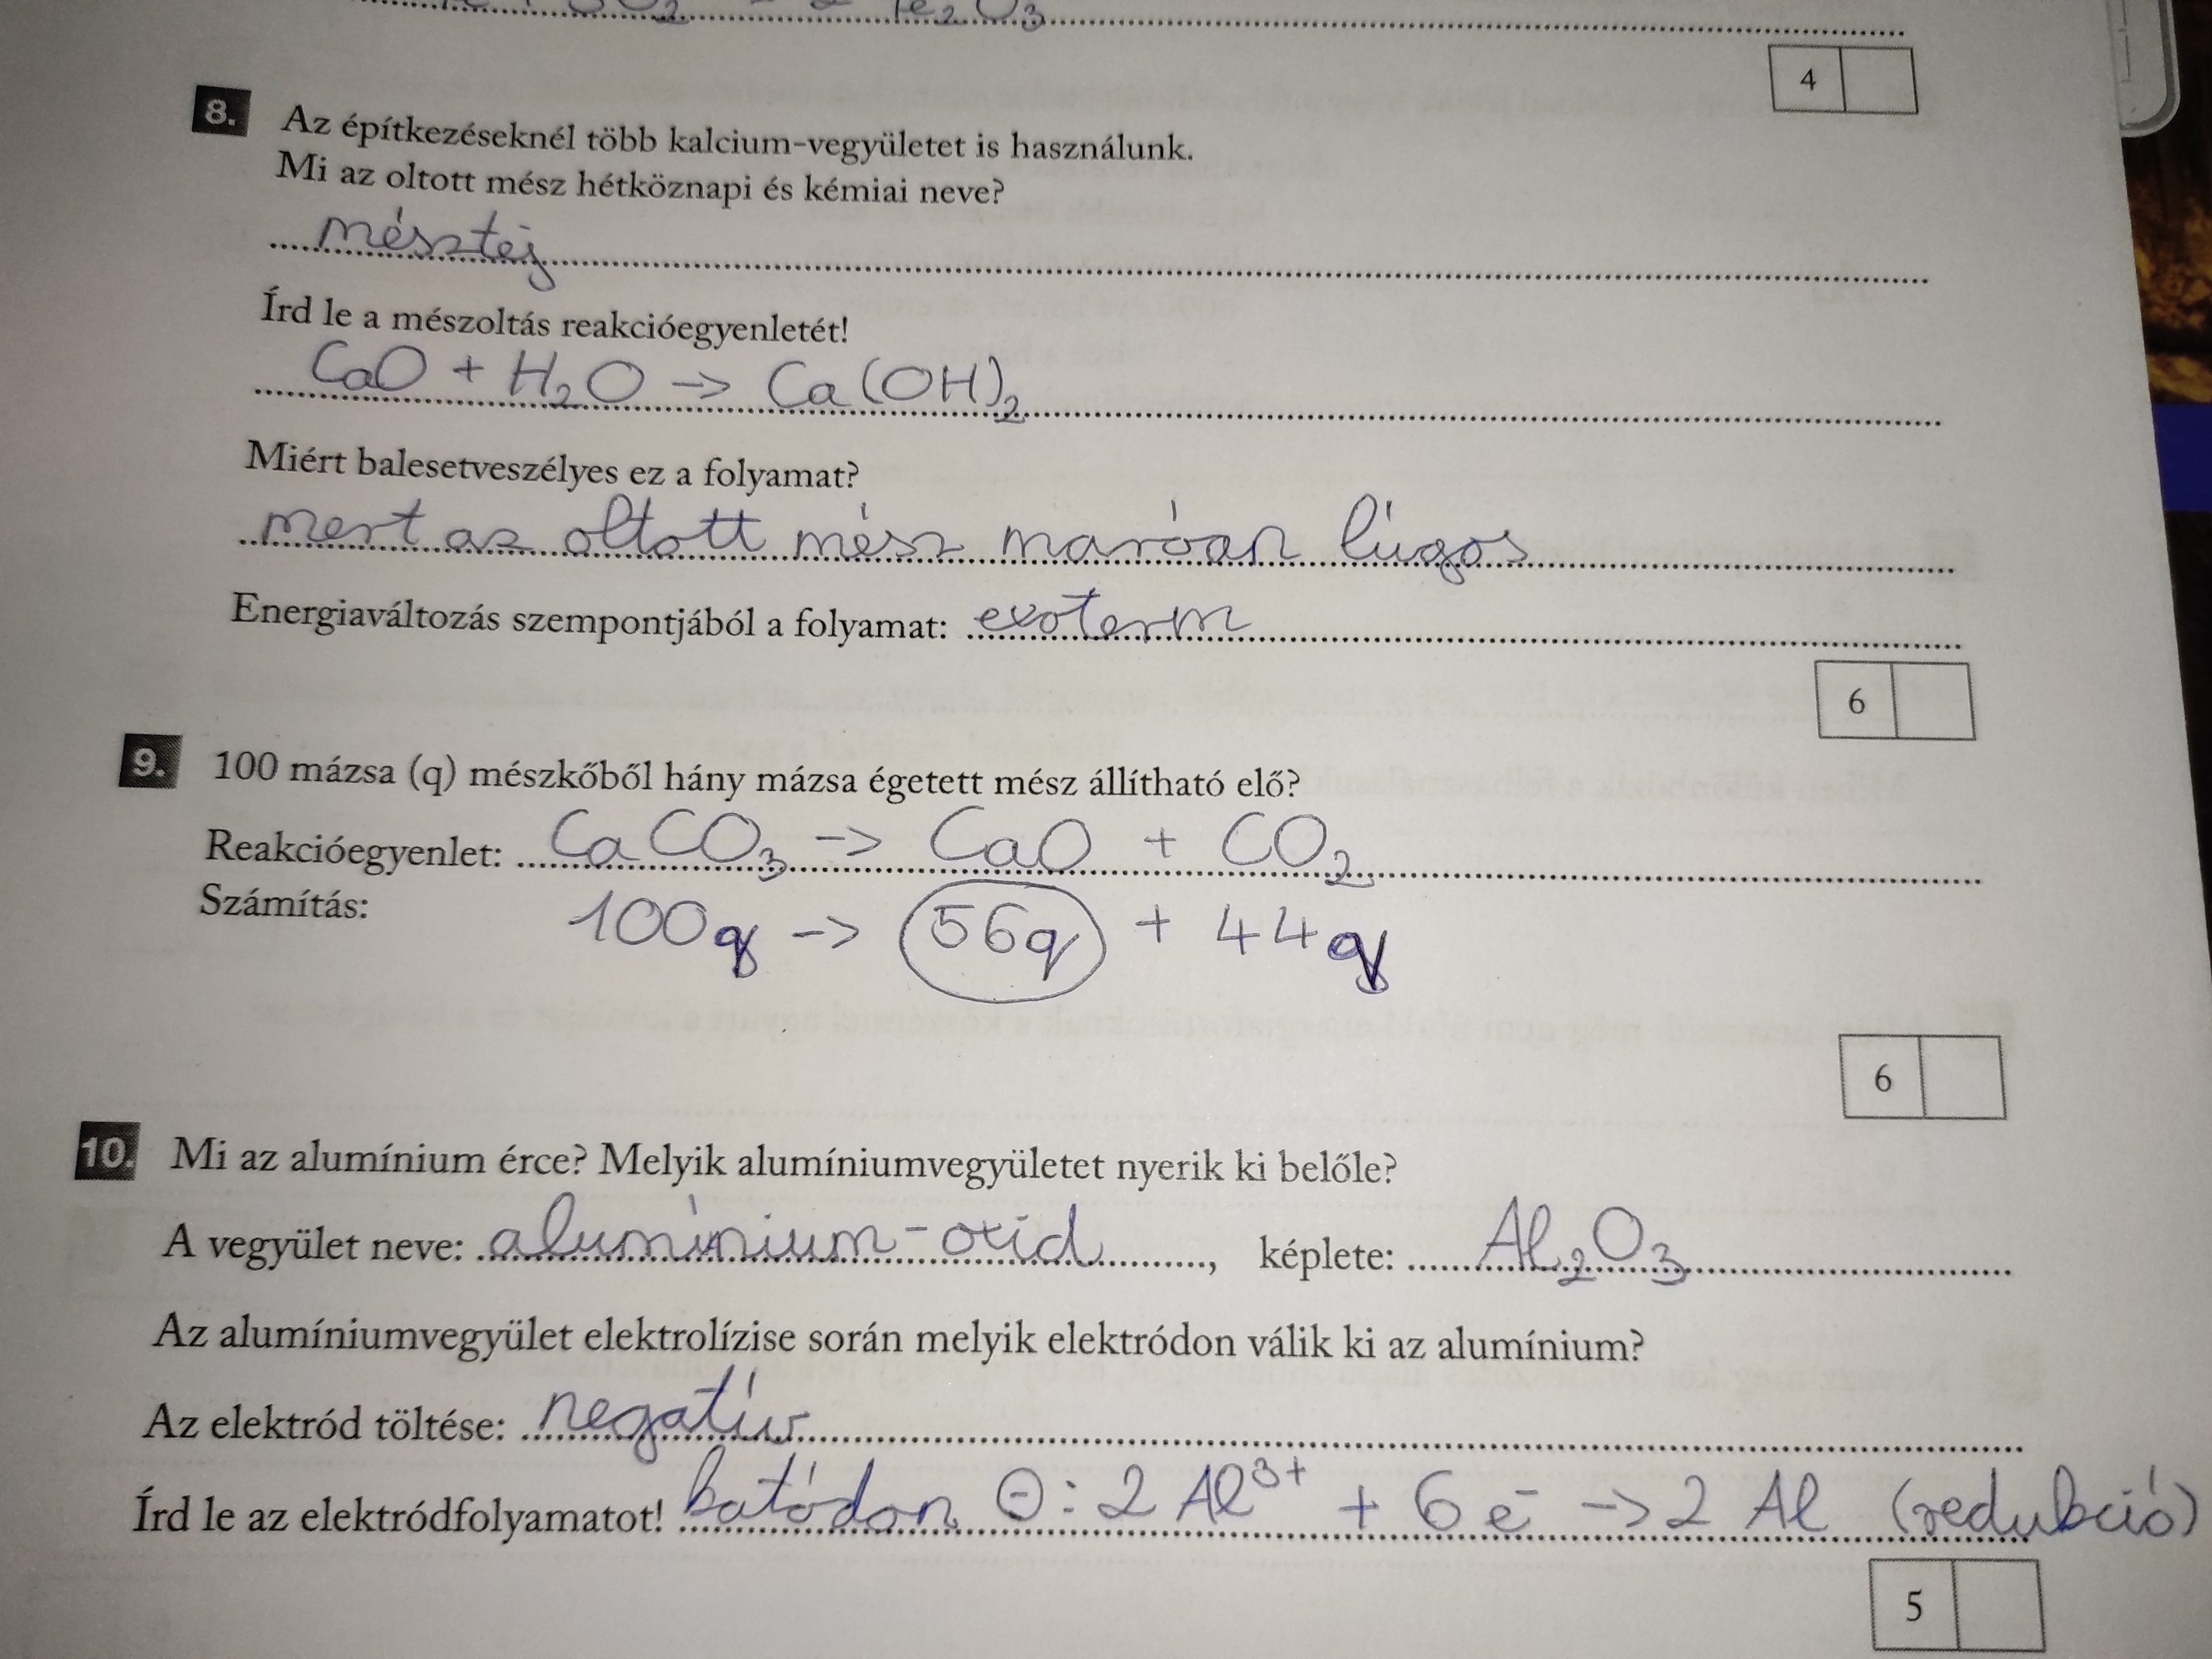 Fe₂O₃
4
8. Az építkezéseknél több kalcium-vegyületet is használunk.
Mi az oltott mész hétköznapi és kémiai neve?
mésztej
Írd le a mészoltás reakcióegyenletét!
CaO + H₂O -> Ca(OH)₂
Miért balesetveszélyes ez a folyamat?
mert az oltott mész maróan lúgos
Energiaváltozás szempontjából a folyamat: exoterm
6
9. 100 mázsa (q) mészkőből hány mázsa égetett mész állítható elő?
Reakcióegyenlet: CaCO₃ -> CaO + CO₂
Számítás: 100q -> 56q + 44q
6
10. Mi az alumínium érce? Melyik alumíniumvegyületet nyerik ki belőle?
A vegyület neve: alumínium-oxid, képlete: Al₂O₃
Az alumíniumvegyület elektrolízise során melyik elektródon válik ki az alumínium?
Az elektród töltése: negatív
Írd le az elektródfolyamatot! katódon ⊖: 2 Al³⁺ + 6 e⁻ -> 2 Al (redukció)
5